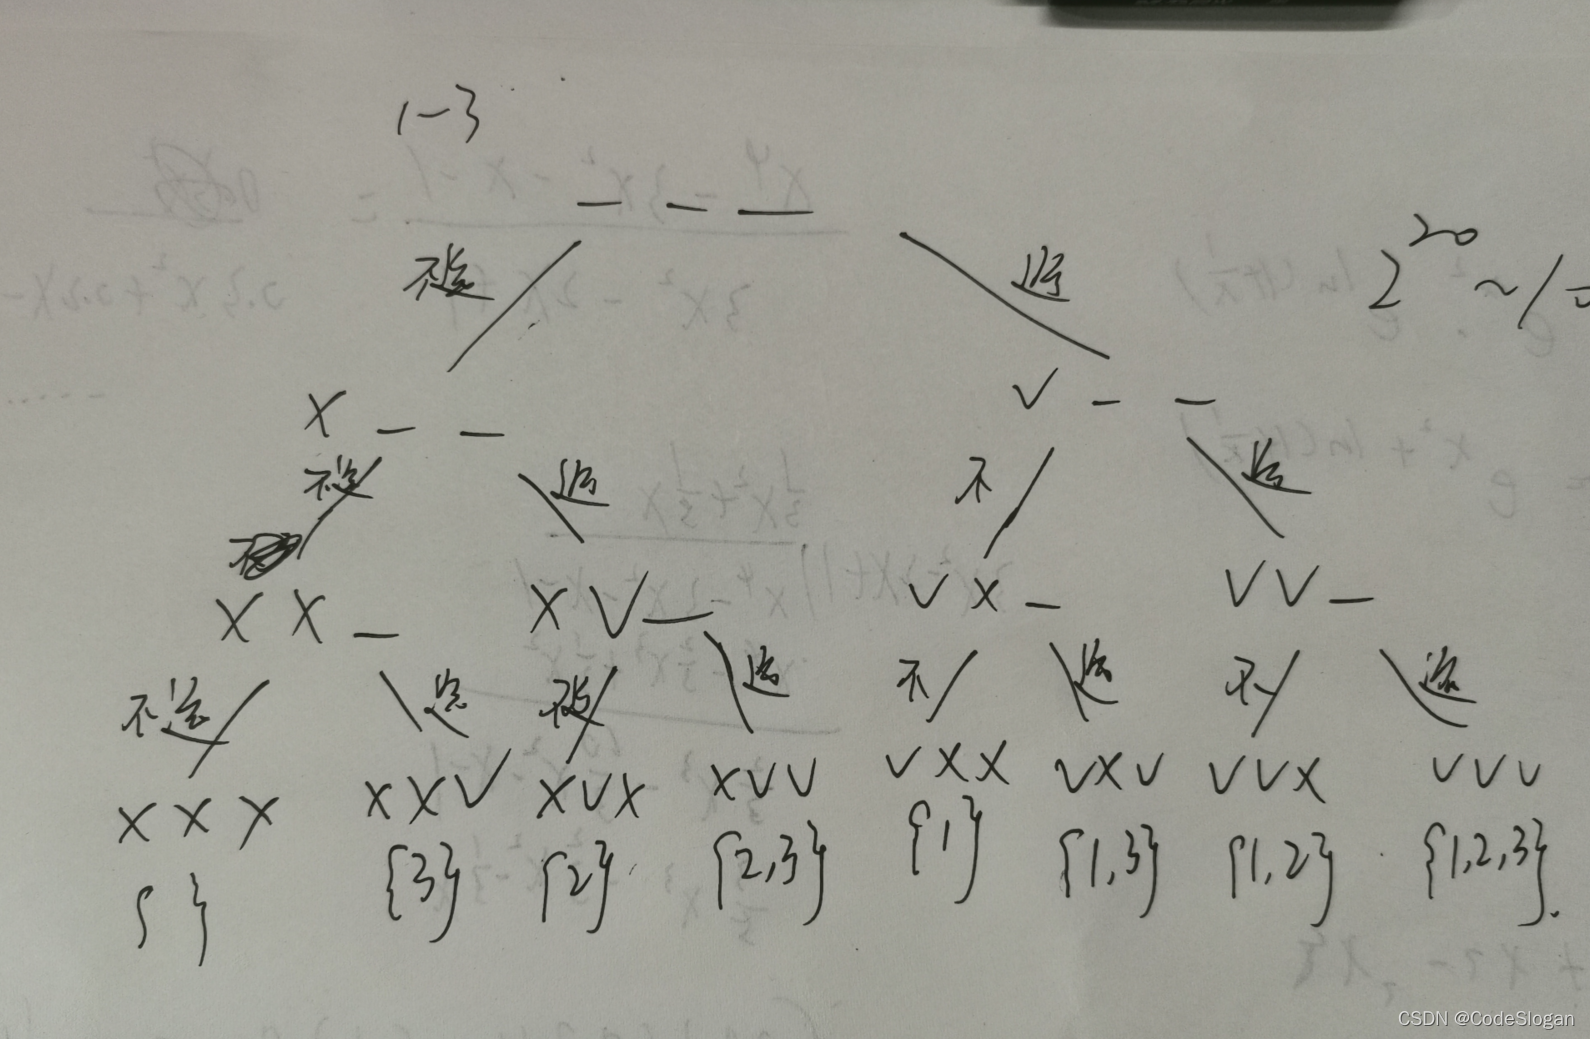 1-3
_ _ _
不选 选
2^20 ~
X _ _ V _ _
不选 选 不 选
X X _ X V _ V X _ V V _
不选 选 不选 选 不 选 不 选
X X X X X V X V X X V V V X X V X V V V X V V V
{ } {3} {2} {2,3} {1} {1,3} {1,2} {1,2,3}.
CSDN @CodeSlogan